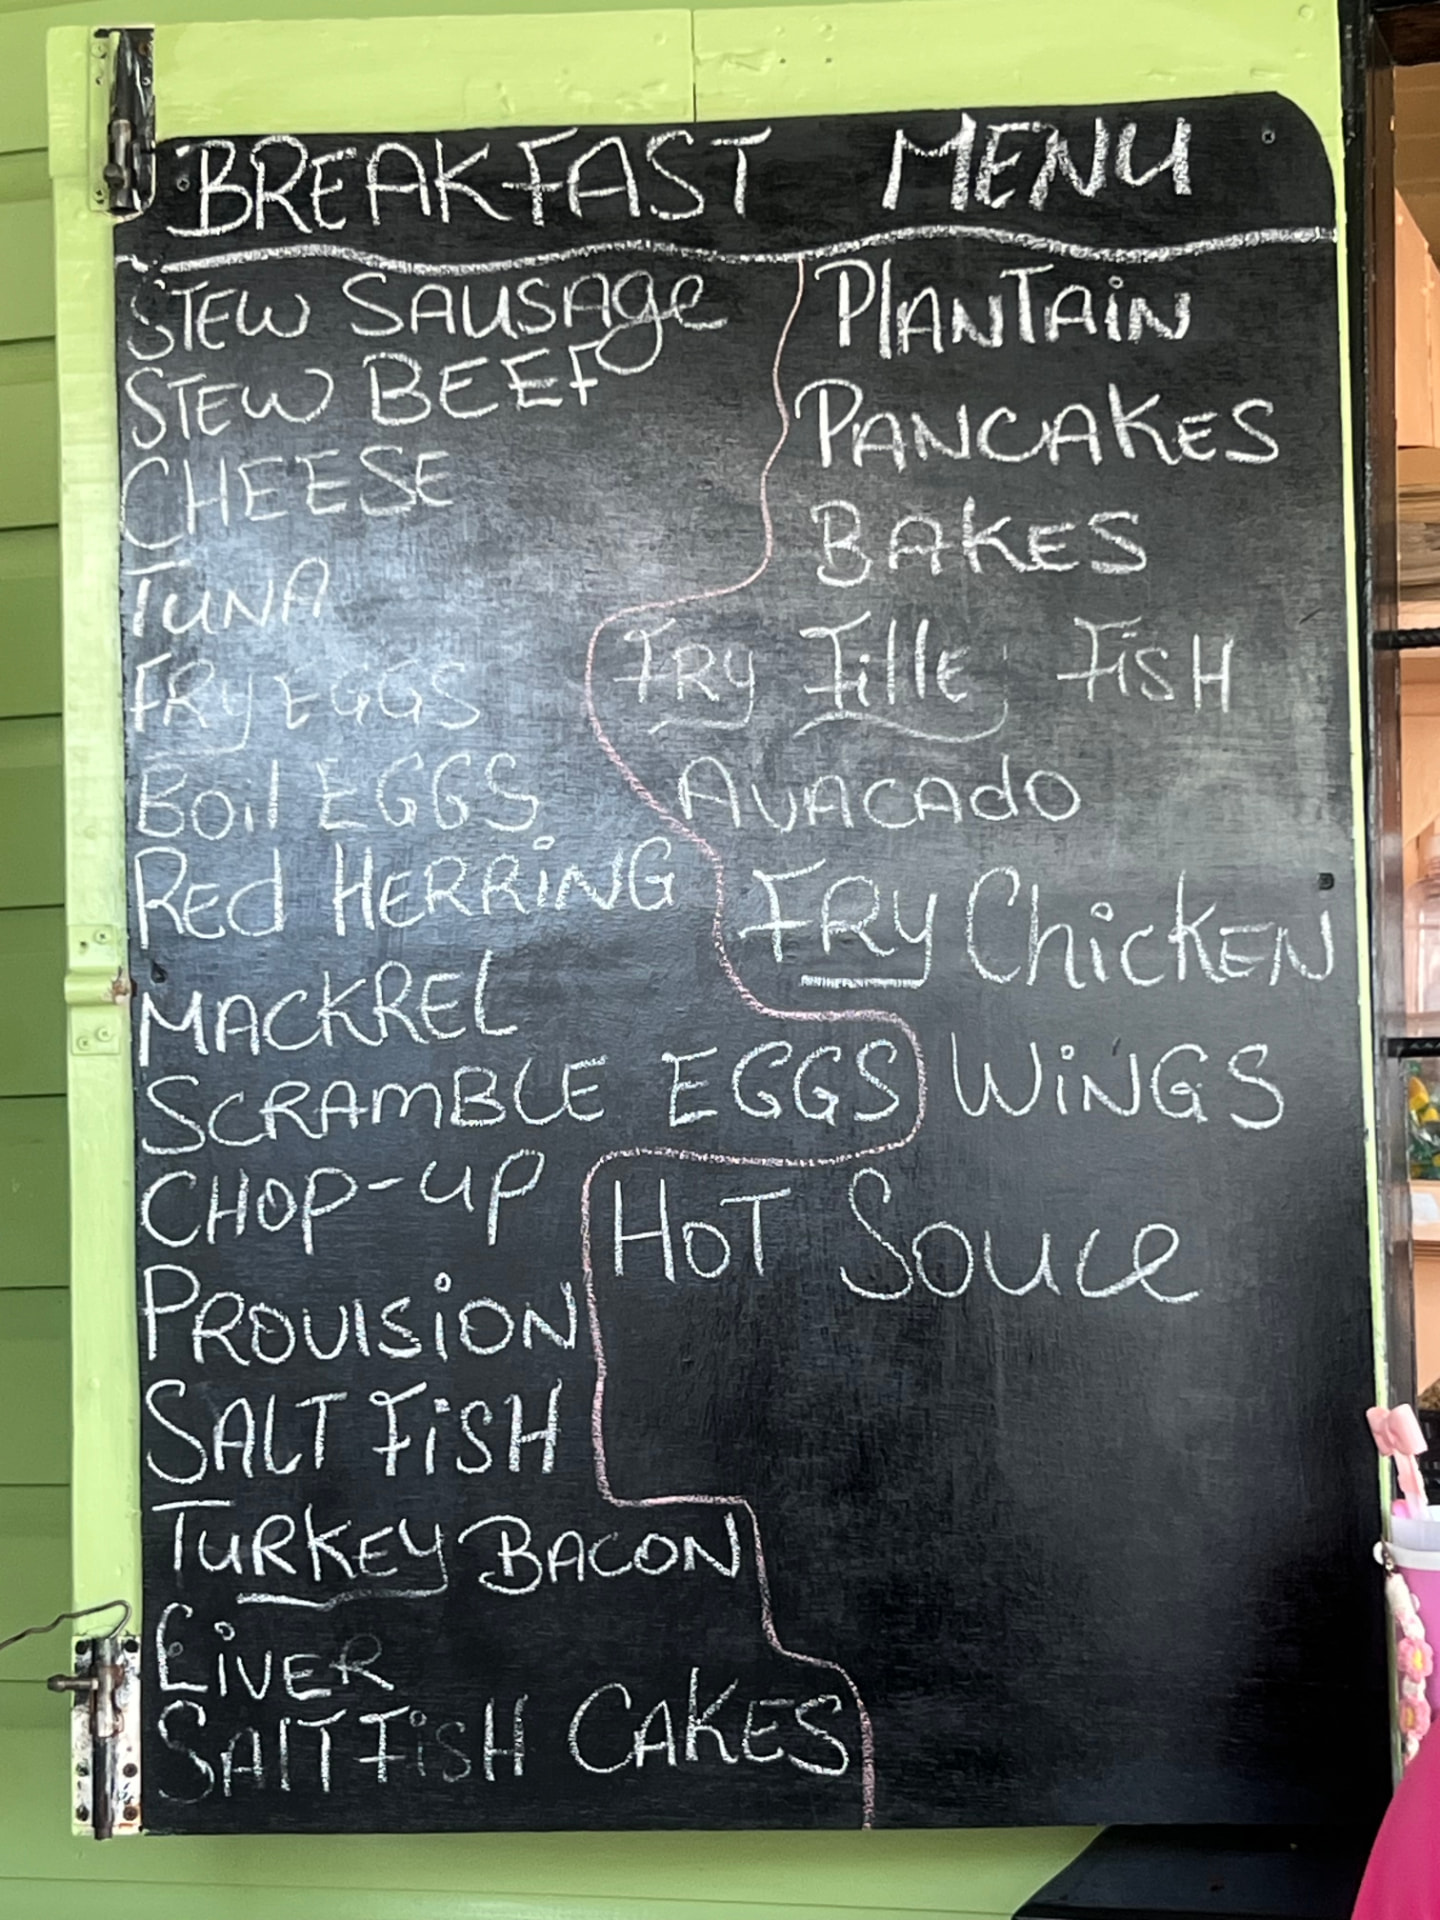 BREAKFAST MENU
STEW SAUSAge
STEW BEEF
CHEESE
TUNA
FRY EGGS
Boil EGGS
Red HERRiNG
MACKREL
SCRAMBLE EGGS
CHOP-UP
PROVISiON
SALT FiSH
TURKEY BACON
LiVER
SAlTFiSH CAKES
PlANTAiN
PANCAKES
BAKES
FRY Fille FiSH
AVACAdO
FRY ChicKEN
WiNGS
HOT Souce